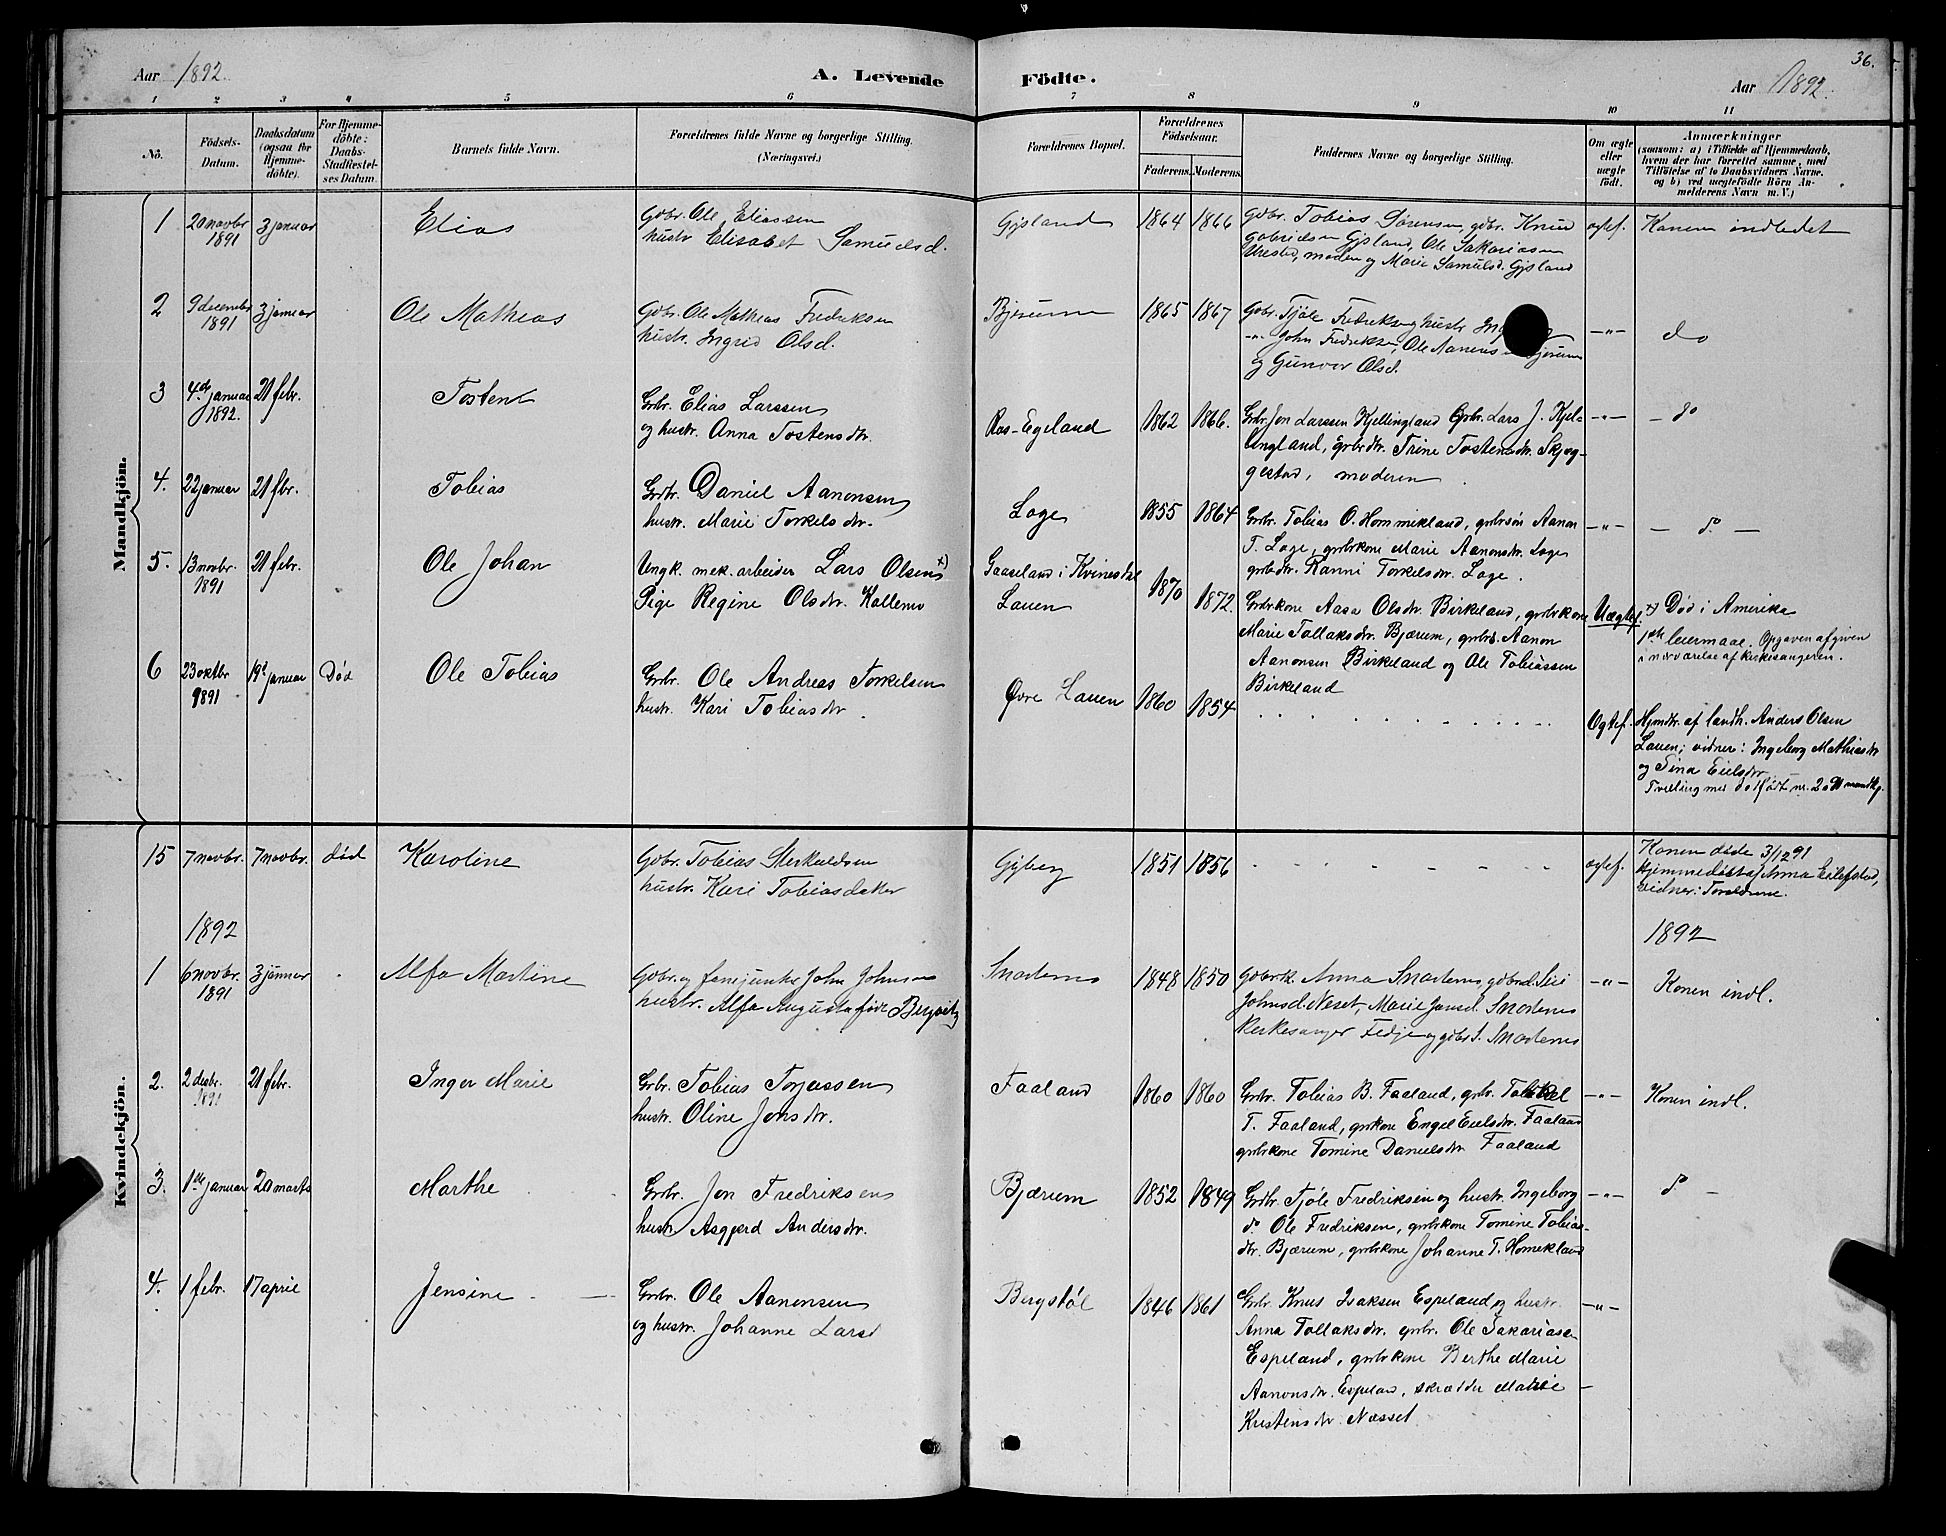 36.
Aar 1892. A. Levende Födte. Aar 1892.
1 2 3 4 5 6 7 8 9 10 11
No. Födsels-Datum. Daabsdatum (ogsaa for Hjemme-döbte). For Hjemme-döbte: Daabs-Stadfæstel-ses Datum. Barnets fulde Navn. Forældrenes fulde Navne og borgerlige Stilling. (Næringsvei.) Forældrenes Bopæl. Forældrenes Födselsaar. Faderens. Moderens. Faddernes Navne og borgerlige Stilling. Om ægte eller uægte födt. Anmærkninger (saasom: a) i Tilfælde af Hjemmedaab, hvem der har forrettet samme, med Tilföielse af to Daabsvidners Navne. og b) ved uægtefödte Börn An-melderens Navn m. V.)
Mandkjön.
1 20 novbr 1891 3 januar Elias Gdbr. Ole Eliassen
hustr Elisabet Samuelsd. Gysland 1864 1866 Gdbr. Tobias Sørensen, gdbr. Knud
Gabrielsen Gysland, Ole Sakariasen
Urestad, moden og Marie Samuelsd. Gysland ægtef. Konen indledet
2 9 decembr 1891 3 januar Ole Mathias Gdbr. Ole Mathias Fredriksen
hustr. Ingrid Olsd. Bjerum 1865 1867 Gdbr. Tjøle Fredriksen og hustr
-"- John Fredriksen, Ole Aanensen Bjerum
og Gunvor Olsd. -"- do
3 4de januar 1892. 21 febr. Tosten Grbr. Elias Larssen
og hustr. Anna Tostensdtr. Ros-Egeland 1862 1866. Grbr. Jon Larssen Kjellingland Grbr. Lars J. Kjel-
lingland, grbrdtr. Trine Tostensdtr. Skjæg-
gestad, moderen -"- - do
4. 22 januar 21 fbr. Tobias Grbr. Daniel Aanonsen
hustr. Marie Torkelsdtr. Loge 1855 1864 Grbr. Tobias O. Hommekland, grbrsøn Aanon
T. Loge, grbrkone Marie Aanonsdtr. Loge
grbrdtr. Ranni Torkelsdtr. Loge. -"- - do -
5. 13 novbr. 1891 21 febr. Ole Johan Ungk. mek. arbeider Lars Olsen x)
Pige Regine Olsdtr. Kallemo Gaaseland i Kvinesdal
Lauen 1870 1872 Grbrkone Aasa Olsdtr. Birkeland, grbrkone
Marie Tollaksdtr. Bjærum, grbr. Aanon
Aanonsen Birkeland og Ole Tobiassen
Birkeland Uægtef. x) Død i Amerika
1ste leiermaal. Opgaven afgiven
i nærværelse af kirkesangeren.
6 23 oktbr 1891 19de januar Død Ole Tobias Grbr. Ole Andreas Torkelsen
hustr. Kari Tobiasdtr. Øvre Lauen 1860 1854 Ægtef. Hjmdbt. af landh. Anders Olsen
Lauen; vidner: Ingeborg Mathiasdtr
og Sina Eielsdtr.
Tvilling med dødfødt nr. 2 91 mandkj.
Kvindekjön.
15 7 novbr. 7 novbr. død Karoline Gdbr. Tobias
hustr. Kari Tobiasdatter Gyberg 1851 1856 - - - - - - ægtef. Konen døde 3/12 91
Hjemmedøbt af Anna Eilefstad,
vidner: Forældrene.
1892 1892
1 6 novbr. 1891 3 januar Alfa Martine Gdbr. og fanejunker John Johnsen
hustr. Alfa Augusta født Bergwitz Snartemo 1848 1850 Gdbrk. Anna Snartemo, gdbrd. Siri
Johnsd. Neset, Marie Jansd. Snartemo
Kirkesanger Fedje og gdbr. S. Snartemo -"- Konen indl.
2. 2 desbr. 1891 21 febr. Inger Marie Grbr. Tobias Torjussen
hustr. Oline Jonsdtr. Faaland 1860 1860 Grbr. Tobias B. Faaland, grbr.
T. Faaland, grbrkone Engel Eielsdtr. Faaland
grbrkone Tomine Danielsdtr. Faaland -"- Konen indl.
3. 1ste januar 20 marts Marthe Grbr. Jon Fredriksen
hustr Asgjerd Andersdtr. Bjærum 1852 1849 Grbr. Tjøle Fredriksen og hustr. Ingeborg
do Ole Fredriksen, grbrkone Tomine Tobias-
dtr. Bjærum, grbrkone Johanne T. Homekland -"- do -
4. 1 febr. 17 april Jensine Grbr. Ole Aanonsen
og hustr. Johanne Larsd Bergstøl 1846 1861 Grbr. Knut Isaksen Espeland og hustr.
Anna Tollaksdtr. grbr. Ole Sakariasen
Espeland, grbrkone Berthe Marie
Aanonsdtr. Espeland, skrædder Malene
Kristensdtr. Næsset -"-